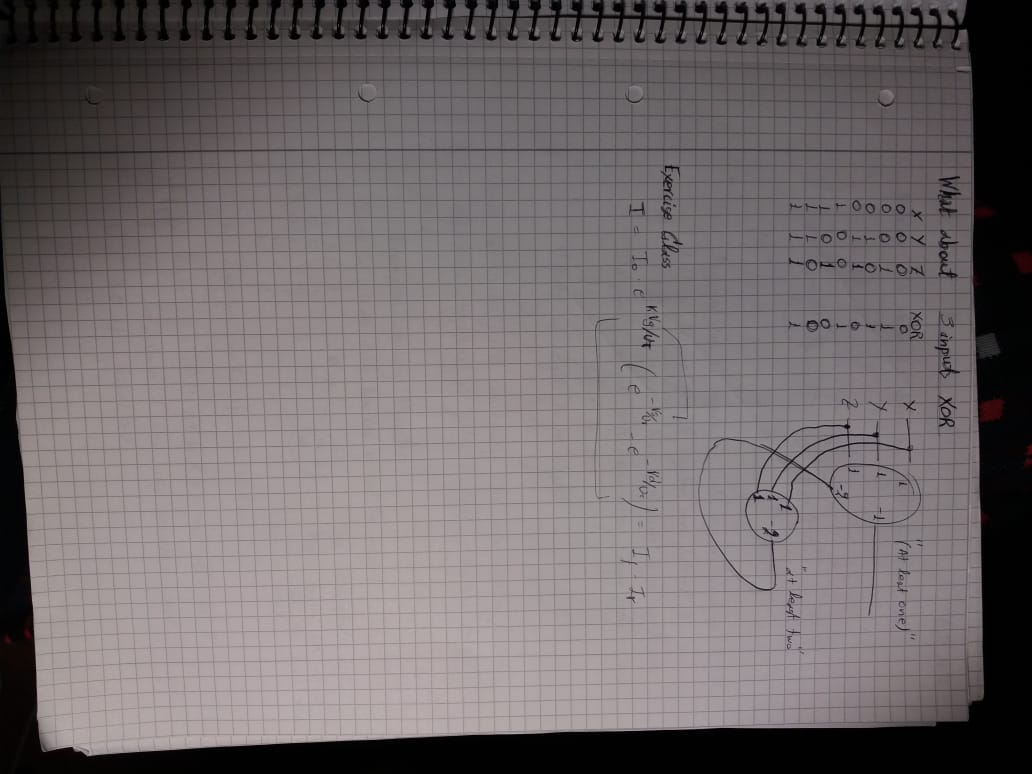 What about 3 inputs XOR
X Y Z XOR
0 0 0 0
0 0 1 1
0 1 0 1
0 1 1 0
1 0 0 1
1 0 1 0
1 1 0 0
1 1 1 1
X
Y
Z
1
1 -1
1
-2
"(At least one)"
1
1 -2
1
"at least two"
Exercise Class
I = I₀ · e^{KVg/UT} (e^{-Vs/UT} - e^{-Vd/UT}) = If - Ir